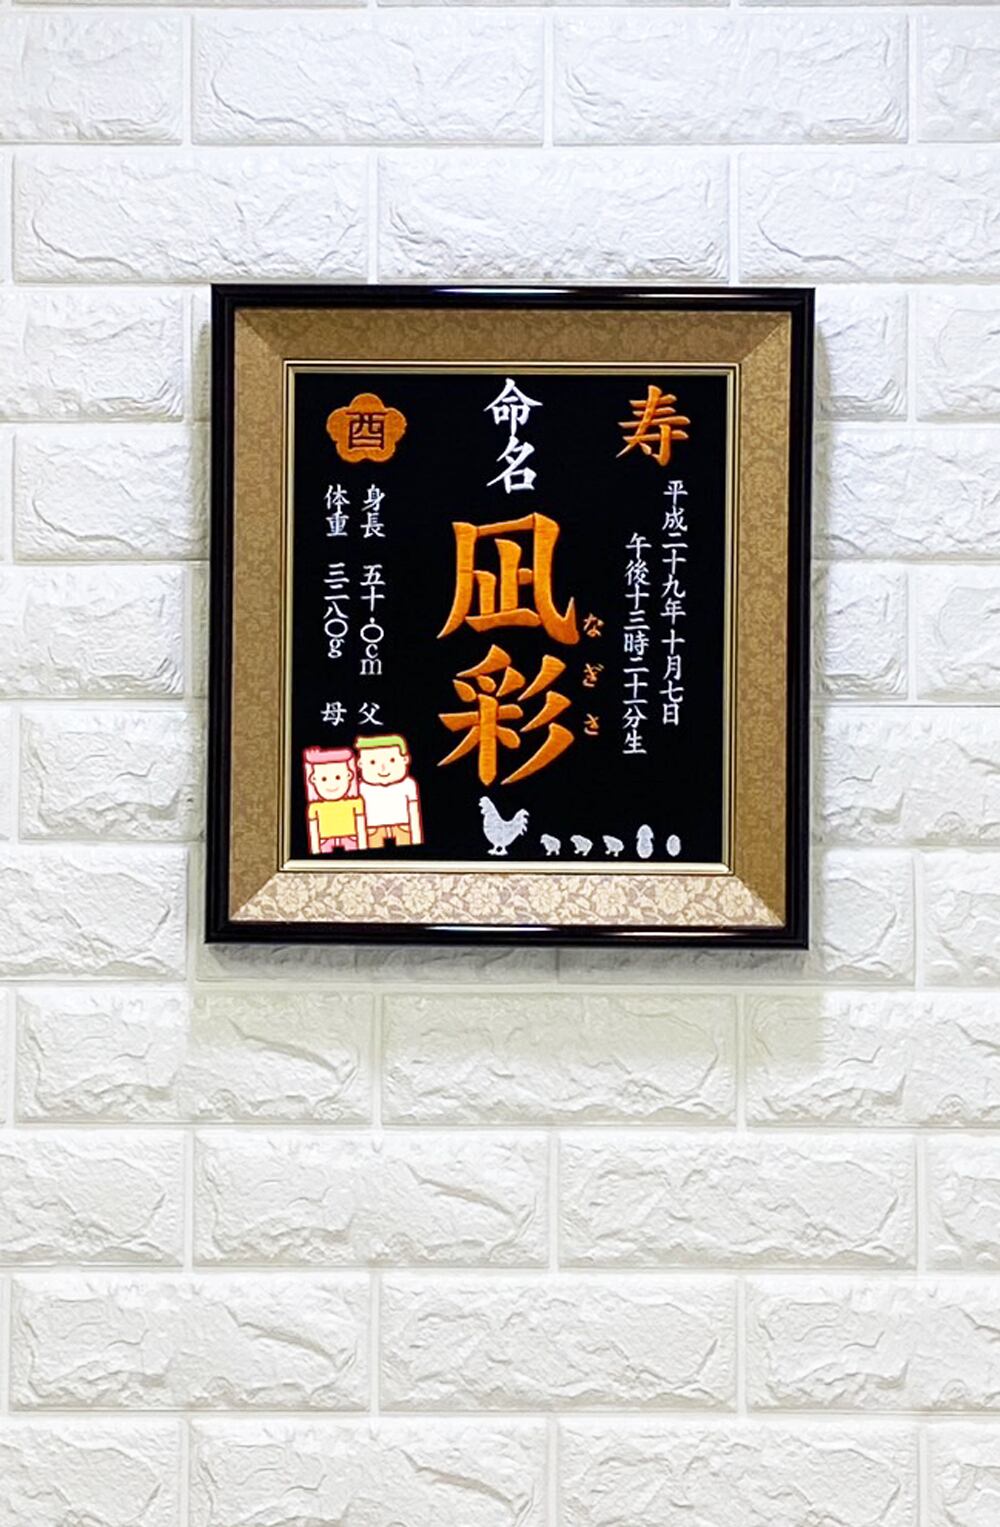 寿
平成二十九年十月七日
午後十三時二十一分生
命名
凪彩
なぎさ
酉
身長 五十・〇cm
体重 三二八〇g
父
母